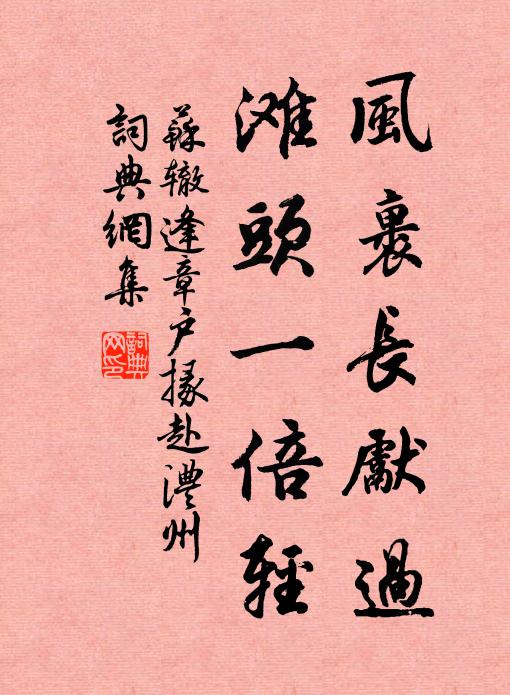 風裏長獻過
滩頭一倍輕
蘇辙逢章户掾赴澧州
詞典網集
詞典网印